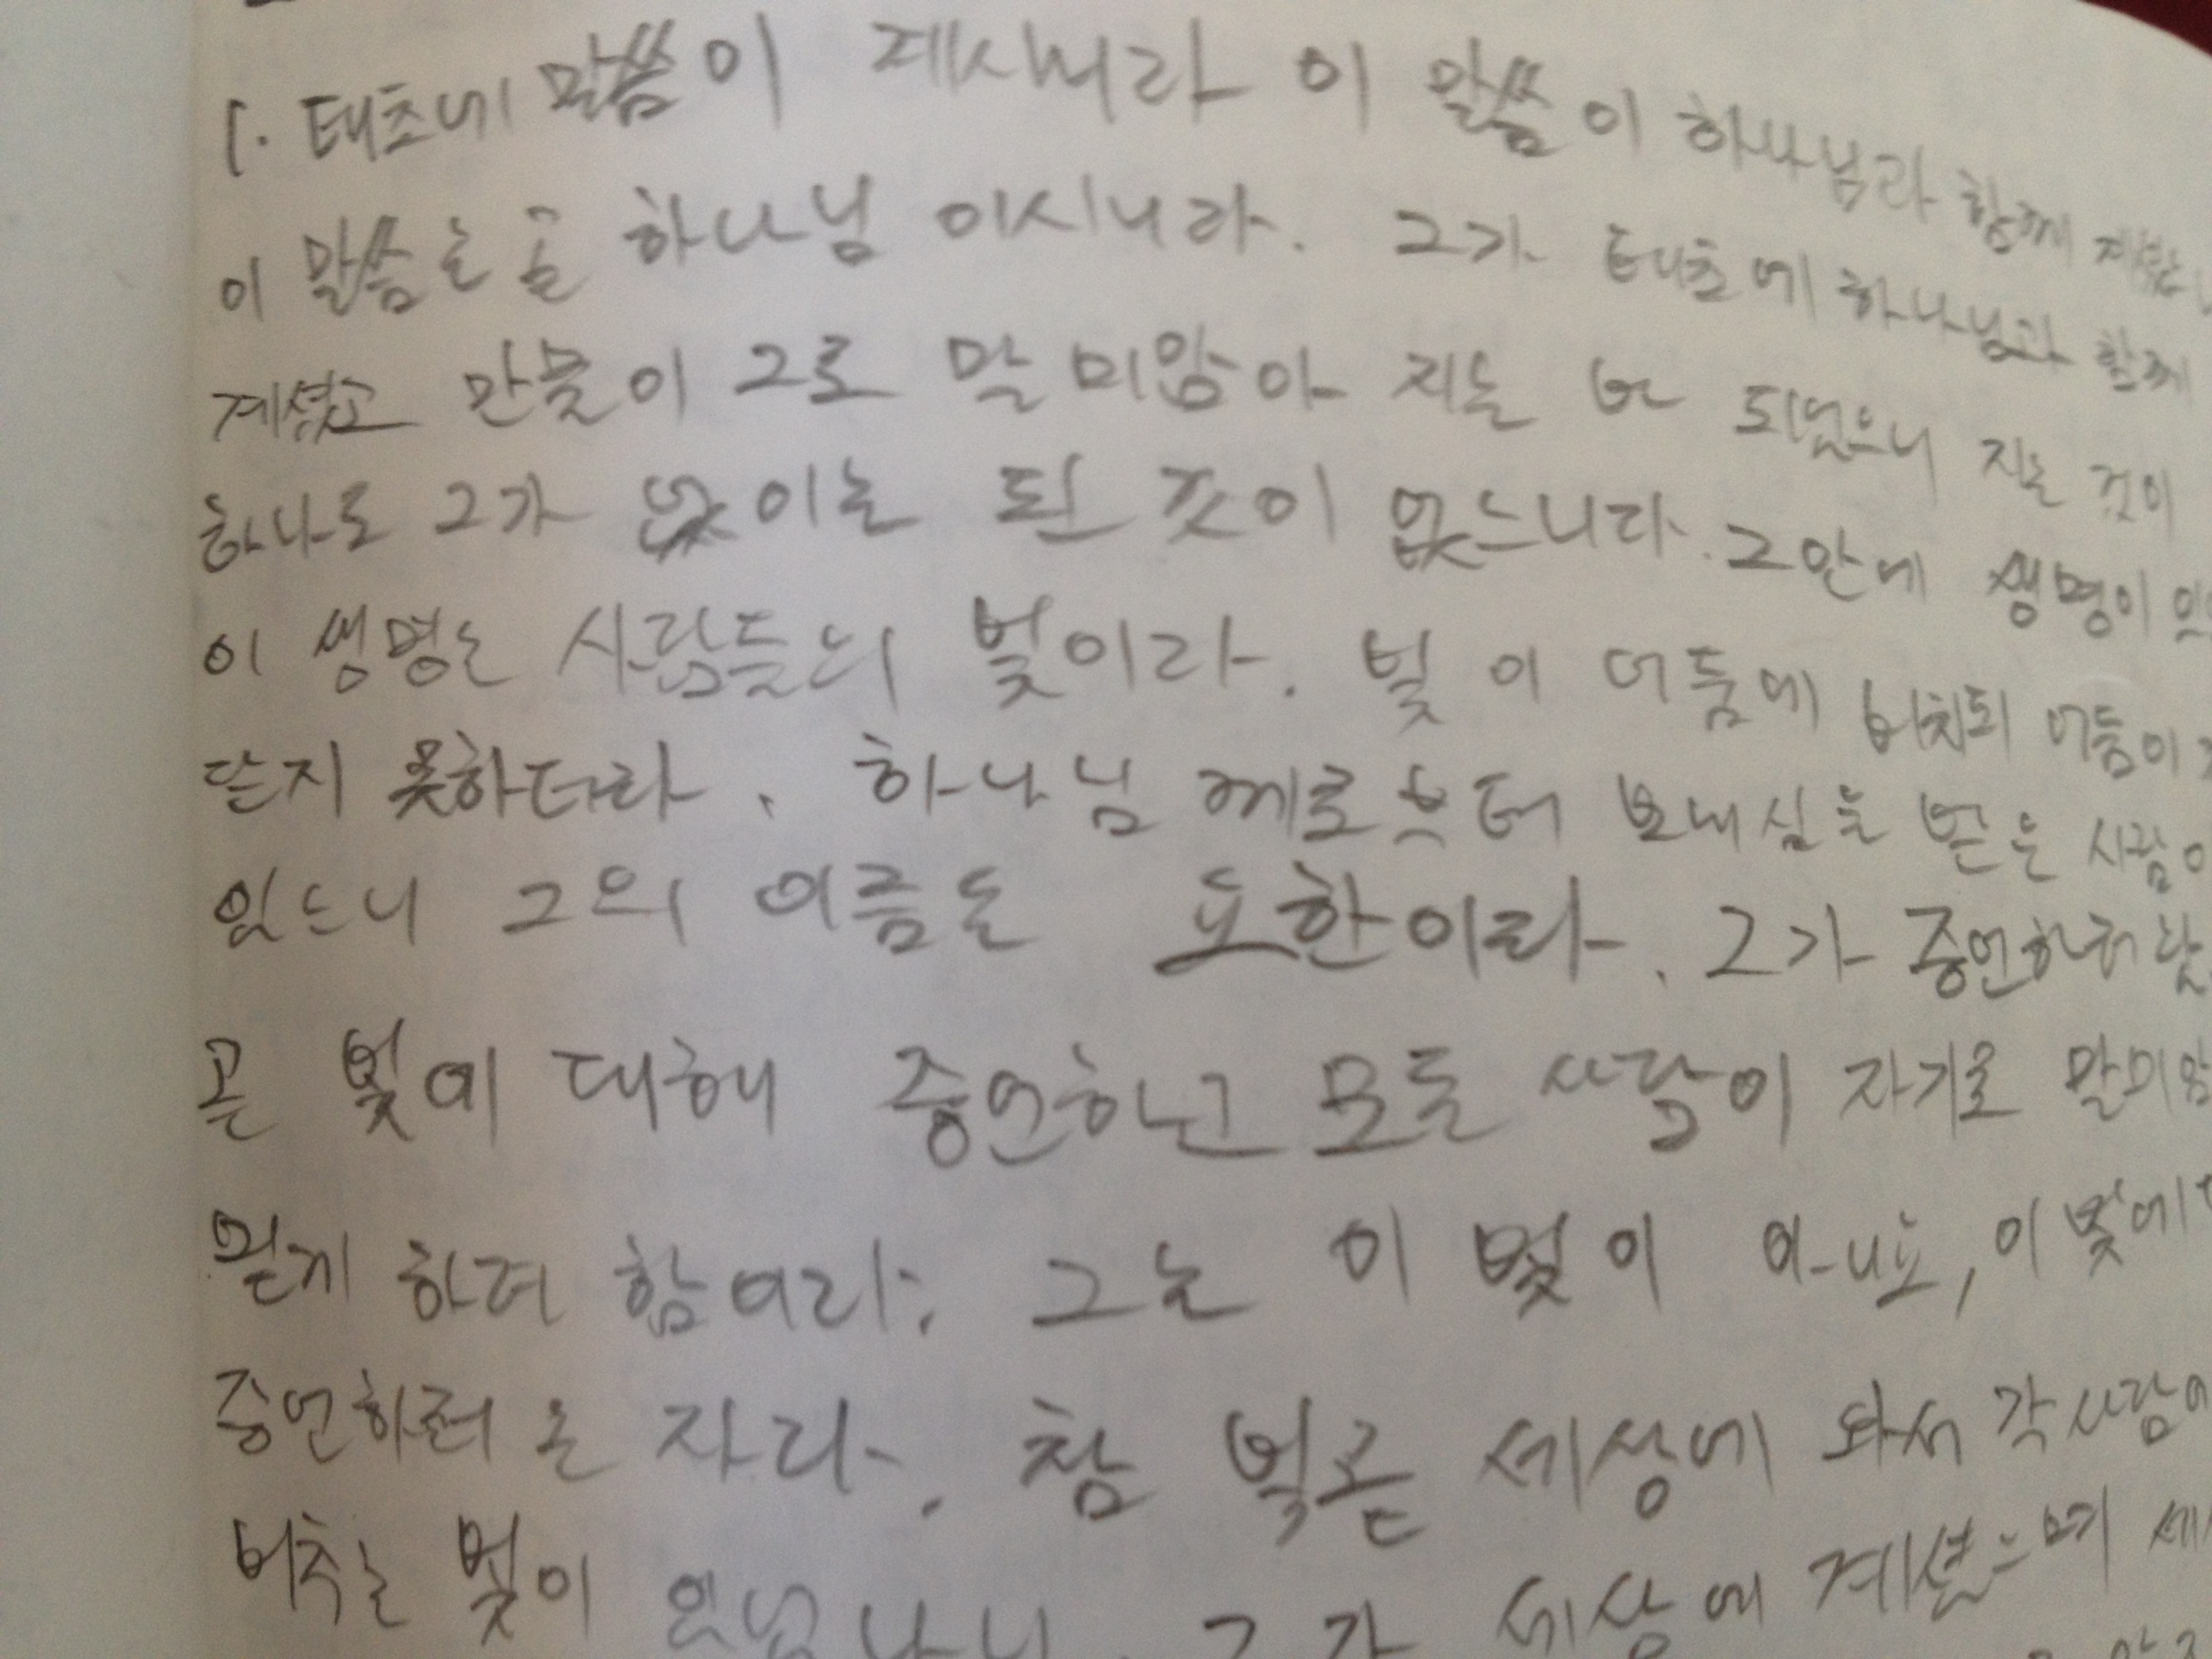 1. 태초에 말씀이 계시니라 이 말씀이 하나님과 함께
이 말씀는 곧 하나님 이시니라. 그가 태초에 하나님과 함께
계셨고 만물이 그로 말미암아 지은 바 되었으니 지은 것이
하나도 그가 없이는 된 것이 없느니라. 그안에 생명이
이 생명는 사람들의 빛이라. 빛이 어둠에 비치되 어둠이
닫지 못하더라. 하나님께로부터 보내심을 받은 사람이
있느니 그의 이름은 요한이라. 그가 증언하러
곧 빛에 대해 증언하고 모든 사람이 자기로 말미암
믿게 하려 함이라. 그는 이 빛이 아니요, 이 빛에
증언하러 온 자라. 참 빛은 세상에 와서 각사람에
비추는 빛이 그가 세상에 계셨으며 세